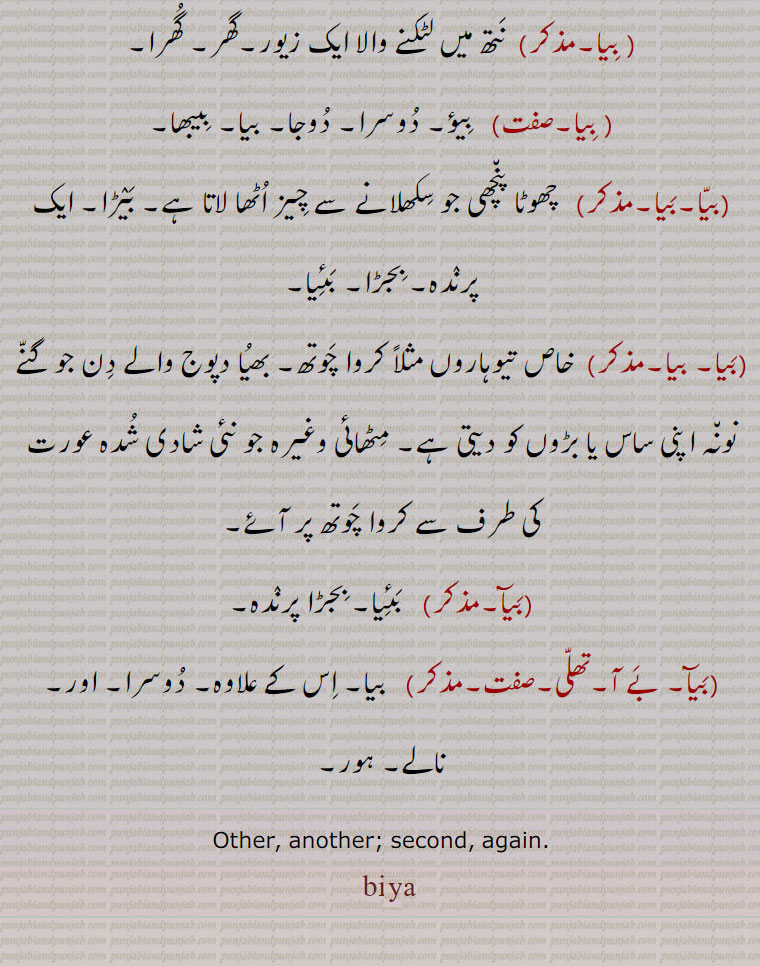 ( بِیا۔مذکر) نَتھ میں لٹکنے والا ایک زیور۔گھر۔ گُھرا۔
( بِیا۔صفت) بِیؤ۔ دُوسرا۔ دُوجا۔ بیا۔ بِیبھا۔
(بیّا۔بَیا۔مذکر) چھوٹا پنّچھی جو سِکھلانے سے چِیز اُٹھا لاتا ہے۔ بَیڑا۔ ایک
پرنْدہ۔بِجڑا۔ بَئِیا۔
(بَیا۔ بیا۔مذکر) خاص تیوہاروں مثلاً کروا چَوتھ۔ بھیُا دپوج والے دِن جو گنّے
نونّہ اپنی ساس یا بڑوں کو دیتی ہے۔ مِٹھائی وغیرہ جو نئی شادی شُدہ عورت
کی طرف سے کروا چَوتھ پر آئے۔
(بَیآ۔مذکر) بَئِیا۔بِجڑا پرنْدہ۔
(بَیآ۔ بےَ آ۔تھلّی۔صفت۔مذکر) بیا۔ اِس کے علاوہ۔ دُوسرا۔ اور۔
نالے۔ ہور۔
Other, another; second, again.
biya